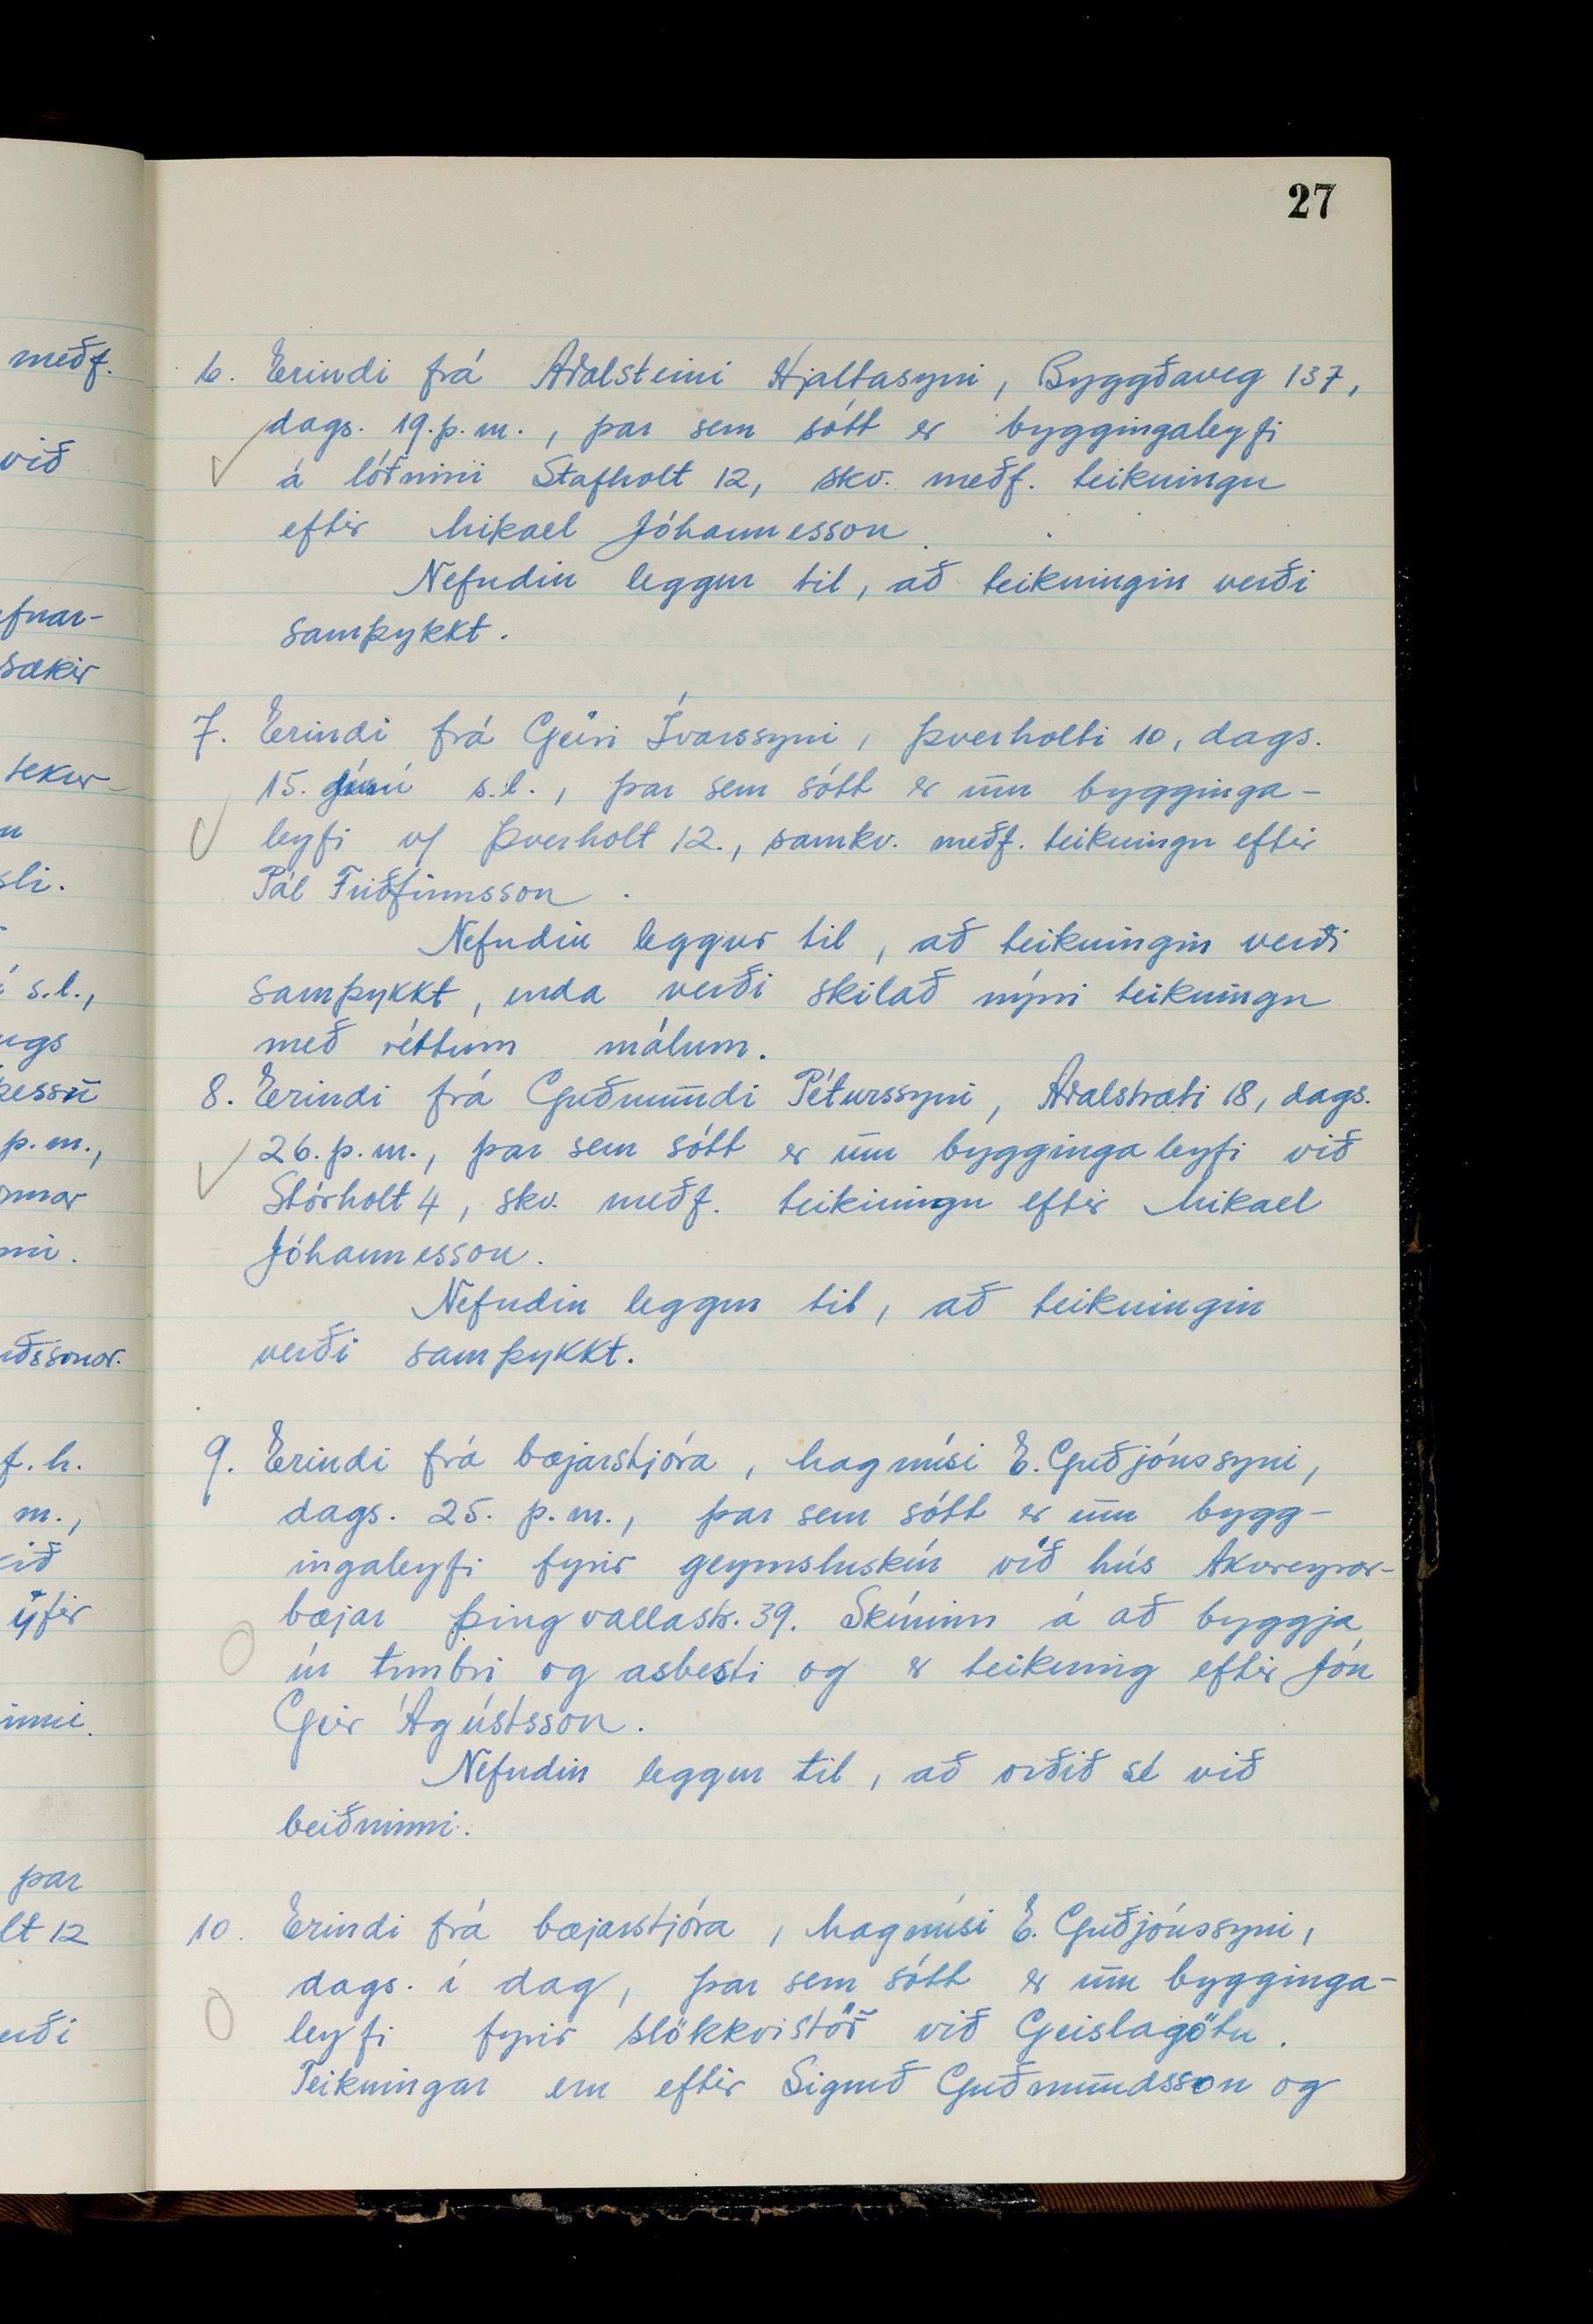 27
meðf.
við
efnar-
sækir
tekur-
sli.
s.l.,
ugs
þessu
p.m.,
mi.
ðssonar.
f.h.
m.,
yfir
inni.
þar
lt 12
6. Erindi frá Aðalsteini Hjaltasyni, Byggðaveg 137,
dags. 19. þ.m., þar sem sótt er byggingaleyfi
á lóðinni Stafholt 12, skv. meðf. teikningu
eftir Mikael Jóhannesson.
Nefndin leggur til, að teikningin verði
samþykkt.
7. Erindi frá Geiri Ívarssyni, Þverholti 10, dags.
15. júní s.l., þar sem sótt er um bygginga-
leyfi v/ Þverholt 12., samkv. meðf. teikningu eftir
Pál Friðfinnsson.
Nefndin leggur til, að teikningin verði
samþykkt, enda verði skilað nýrri teikningu
með réttum málum.
8. Erindi frá Guðmundi Péturssyni, Aðalstræti 18, dags.
26. þ.m., þar sem sótt er um byggingaleyfi við
Stórholt 4, skv. meðf. teikiningu eftir Mikael
Jóhannesson.
Nefndin leggur til, að teikningin
verði samþykkt.
9. Erindi frá bæjarstjóra, Magnúsi E. Guðjónssyni,
dags. 25. þ.m., þar sem sótt er um bygg-
ingaleyfi fyrir geymsluskúr við hús Akureyrar-
bæjar Þingvallastr. 39. Skúrinn á að byggja
úr timbri og asbesti og er teikning eftir Jón
Geir Ágústsson.
Nefndin leggur til, að orðið sé við
beiðninni.
10. Erindi frá bæjarstjóra, Magnúsi E. Guðjónssyni,
dags. í dag, þar sem sótt er um bygginga-
leyfi fyrir slökkvistöð við Geislagötu.
Teikningar eru eftir Sigurð Guðmundsson og